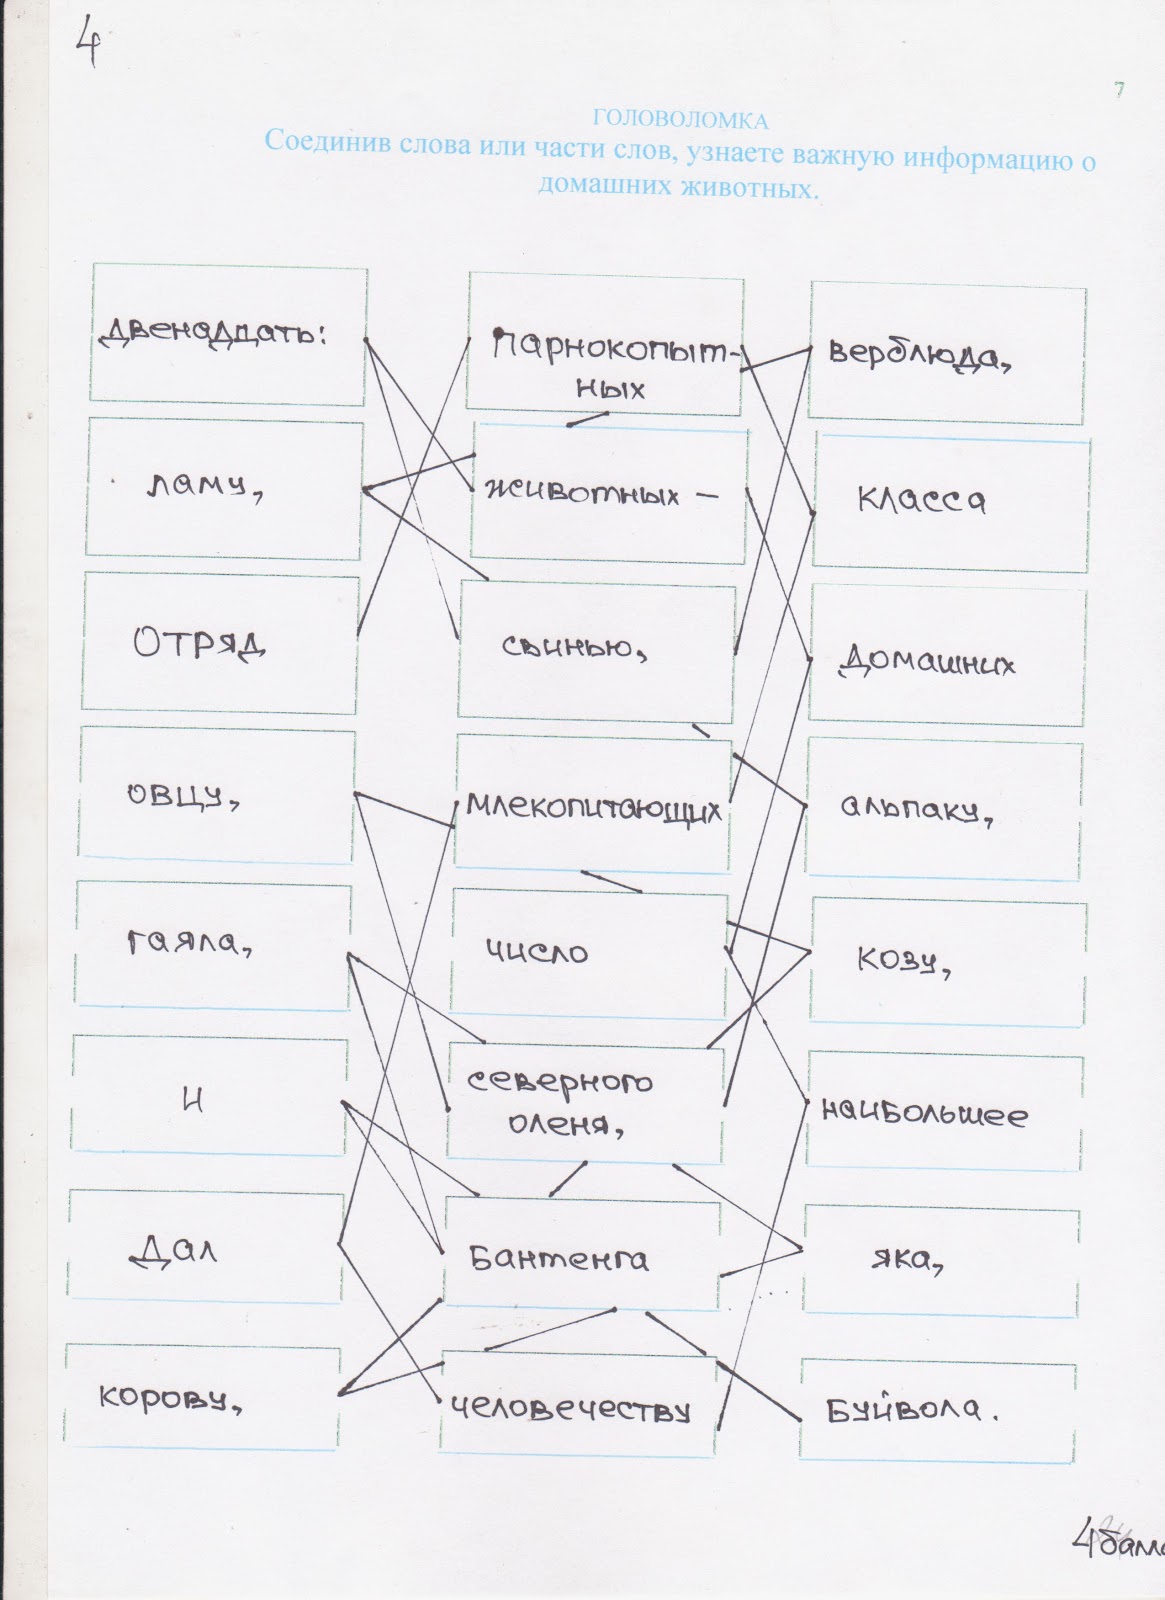 4
7
ГОЛОВОЛОМКА
Соединив слова или части слов, узнаете важную информацию о
домашних животных.
двенадцать:
Парнокопыт-
ных
верблюда,
ламу,
животных –
класса
Отряд
свинью,
домашних
овцу,
млекопитающих
альпаку,
гаяла,
число
козу,
и
северного
оленя,
наибольшее
Дал
Бантенга
яка,
корову,
человечеству
Буйвола.
4 балла